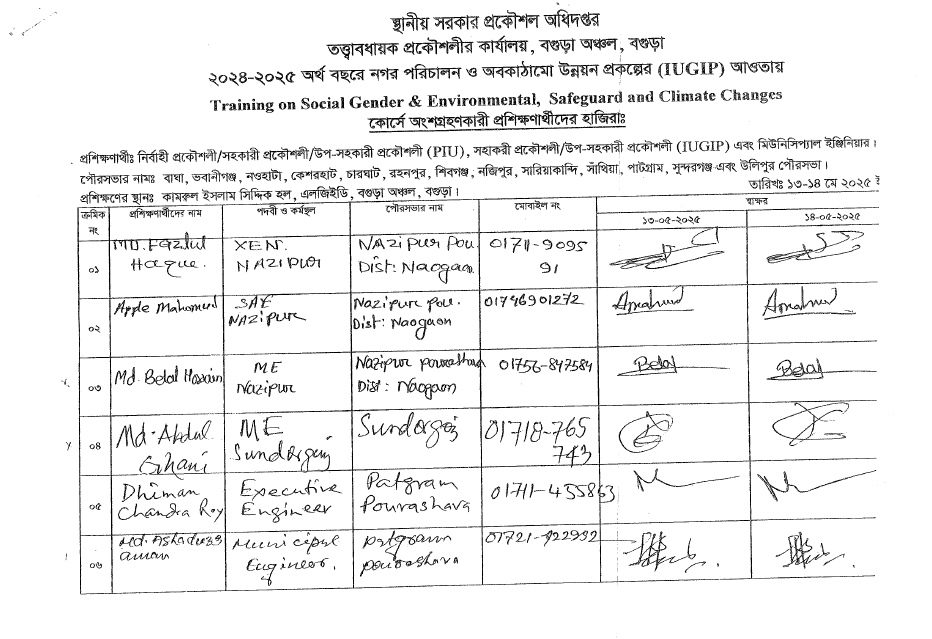 স্থানীয় সরকার প্রকৌশল অধিদপ্তর
তত্ত্বাবধায়ক প্রকৌশলীর কার্যালয়, বগুড়া অঞ্চল, বগুড়া
২০২৪-২০২৫ অর্থ বছরে নগর পরিচালন ও অবকাঠামো উন্নয়ন প্রকল্পের (IUGIP) আওতায়
Training on Social Gender & Environmental, Safeguard and Climate Changes
কোর্সে অংশগ্রহণকারী প্রশিক্ষণার্থীদের হাজিরাঃ
প্রশিক্ষণার্থীঃ নির্বাহী প্রকৌশলী/সহকারী প্রকৌশলী/উপ-সহকারী প্রকৌশলী (PIU), সহাকরী প্রকৌশলী/উপ-সহকারী প্রকৌশলী (IUGIP) এবং মিউনিসিপ্যাল ইঞ্জিনিয়ার।
পৌরসভার নামঃ বাঘা, ভবানীগঞ্জ, নওহাটা, কেশরহাট, চারঘাট, রহনপুর, শিবগঞ্জ, নজিপুর, সারিয়াকান্দি, সাঁথিয়া, পাটগ্রাম, সুন্দরগঞ্জ এবং উলিপুর পৌরসভা।
তারিখঃ ১৩-১৪ মে ২০২৫
প্রশিক্ষণের স্থানঃ কামরুল ইসলাম সিদ্দিক হল, এলজিইডি, বগুড়া অঞ্চল, বগুড়া।
ক্রমিক নং প্রশিক্ষণার্থীদের নাম পদবী ও কর্মস্থল পৌরসভার নাম মোবাইল নং স্বাক্ষর
১৩-০৫-২০২৫ ১৪-০৫-২০২৫
০১ MD. Fazlul Haque. XEN. NAZIPUR NAZipur Pou. Dist: Naogaon 01711-909591
০২ Apple Mahomud SAE NAZipur Nazipur pou. Dist: Naogaon 01746901272 Amahmud Amahmud
০৩ Md. Belal Hossain ME Nazipur Nazipur pourashava Dist: Naogaon 01756-847584 Belal Belal
০৪ Md. Abdul Ghani ME Sundargonj Sundargonj 01718-765743
০৫ Dhiman Chandra Roy Executive Engineer Patgram Pourashava 01711-455863
০৬ Md. Ashaduzzaman Municipal Engineer. patgram pourashava 01721-122932